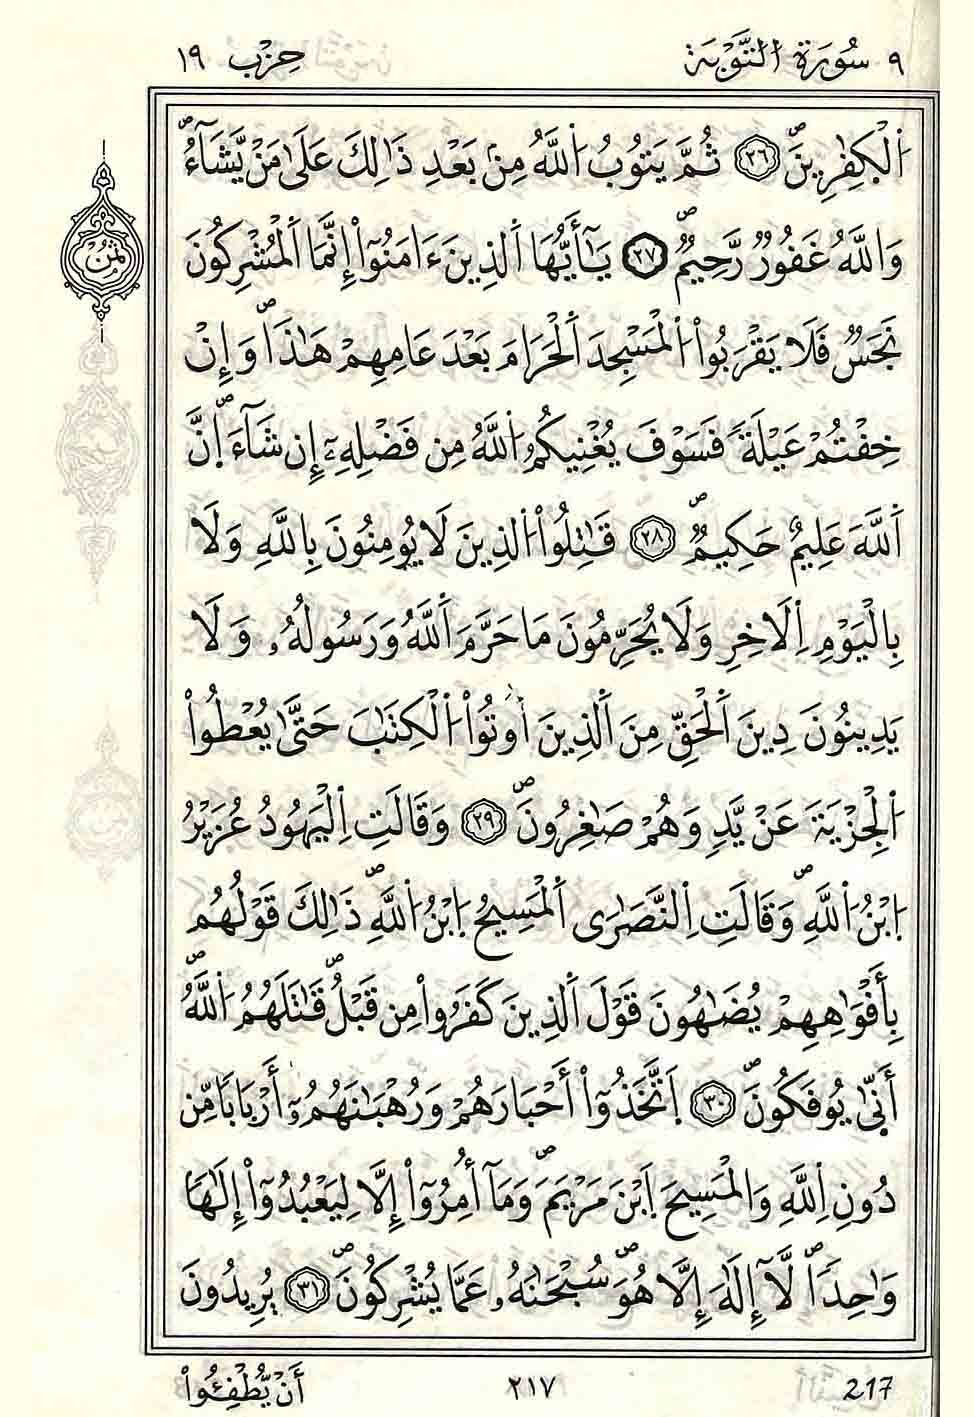 ٩ سُورَةُ التَّوْبَة حِزْب ١٩
اَ۬لْكٰفِرِينَۖ ٢٦ ثُمَّ يَتُوبُ اُ۬للَّهُ مِنۢ بَعْدِ ذَٰلِكَ عَلَىٰ مَنْ يَّشَآءُۖ
وَاللَّهُ غَفُورٌ رَّحِيمٌۖ ٢٧ يَـٰٓأَيُّهَا اَ۬لذِينَ ءَامَنُوٓاْ إِنَّمَا اَ۬لْمُشْرِكُونَ
نَجَسٌ فَلَا يَقْرَبُواْ اُ۬لْمَسْجِدَ اَ۬لْحَرَامَ بَعْدَ عَامِهِمْ هَـٰذَاۖ وَإِنْ
خِفْتُمْ عَيْلَةً فَسَوْفَ يُغْنِيكُمُ اُ۬للَّهُ مِن فَضْلِهِۦٓ إِن شَآءَۖ اِ۪نَّ
اَ۬للَّهَ عَلِيمٌ حَكِيمٌۖ ٢٨ قَـٰتِلُواْ اُ۬لذِينَ لَا يُومِنُونَ بِاللَّهِ وَلَا
بِالْيَوْمِ اِ۬لَاخِرِ وَلَا يُحَرِّمُونَ مَا حَرَّمَ اَ۬للَّهُ وَرَسُولُهُۥ وَلَا
يَدِينُونَ دِينَ اَ۬لْحَقِّ مِنَ اَ۬لذِينَ أُوتُواْ اُ۬لْكِتَـٰبَ حَتَّىٰ يُعْطُواْ
اُ۬لْجِزْيَةَ عَنْ يَّدٍ وَهُمْ صَـٰغِرُونَۖ ٢٩ وَقَالَتِ اِ۬لْيَهُودُ عُزَيْرُ
اُ۪بْنُ اُ۬للَّهِۖ وَقَالَتِ اِ۬لنَّصَـٰرَى اَ۬لْمَسِيحُ اُ۪بْنُ اُ۬للَّهِۖ ذَٰلِكَ قَوْلُهُم
بِأَفْوَٰهِهِمْ يُضَـٰهُونَ قَوْلَ اَ۬لذِينَ كَفَرُواْ مِن قَبْلُۖ قَـٰتَلَهُمُ اُ۬للَّهُۖ
أَنّىٰ يُوفَكُونَۖ ٣٠ اَ۪تَّخَذُوٓاْ أَحْبَارَهُمْ وَرُهْبَـٰنَهُمُۥٓ أَرْبَاباً مِّن
دُونِ اِ۬للَّهِ وَالْمَسِيحَ اَ۪بْنَ مَرْيَمَۖ وَمَآ أُمِرُوٓاْ إِلَّا لِيَعْبُدُوٓاْ إِلَـٰهاً
وَٰحِداًۖ لَّآ إِلَـٰهَ إِلَّا هُوَۖ سُبْحَـٰنَهُۥ عَمَّا يُشْرِكُونَۖ ٣١ يُرِيدُونَ
أَنْ يُّطْفِـُٔواْ ٢١٧ 217
ثمن